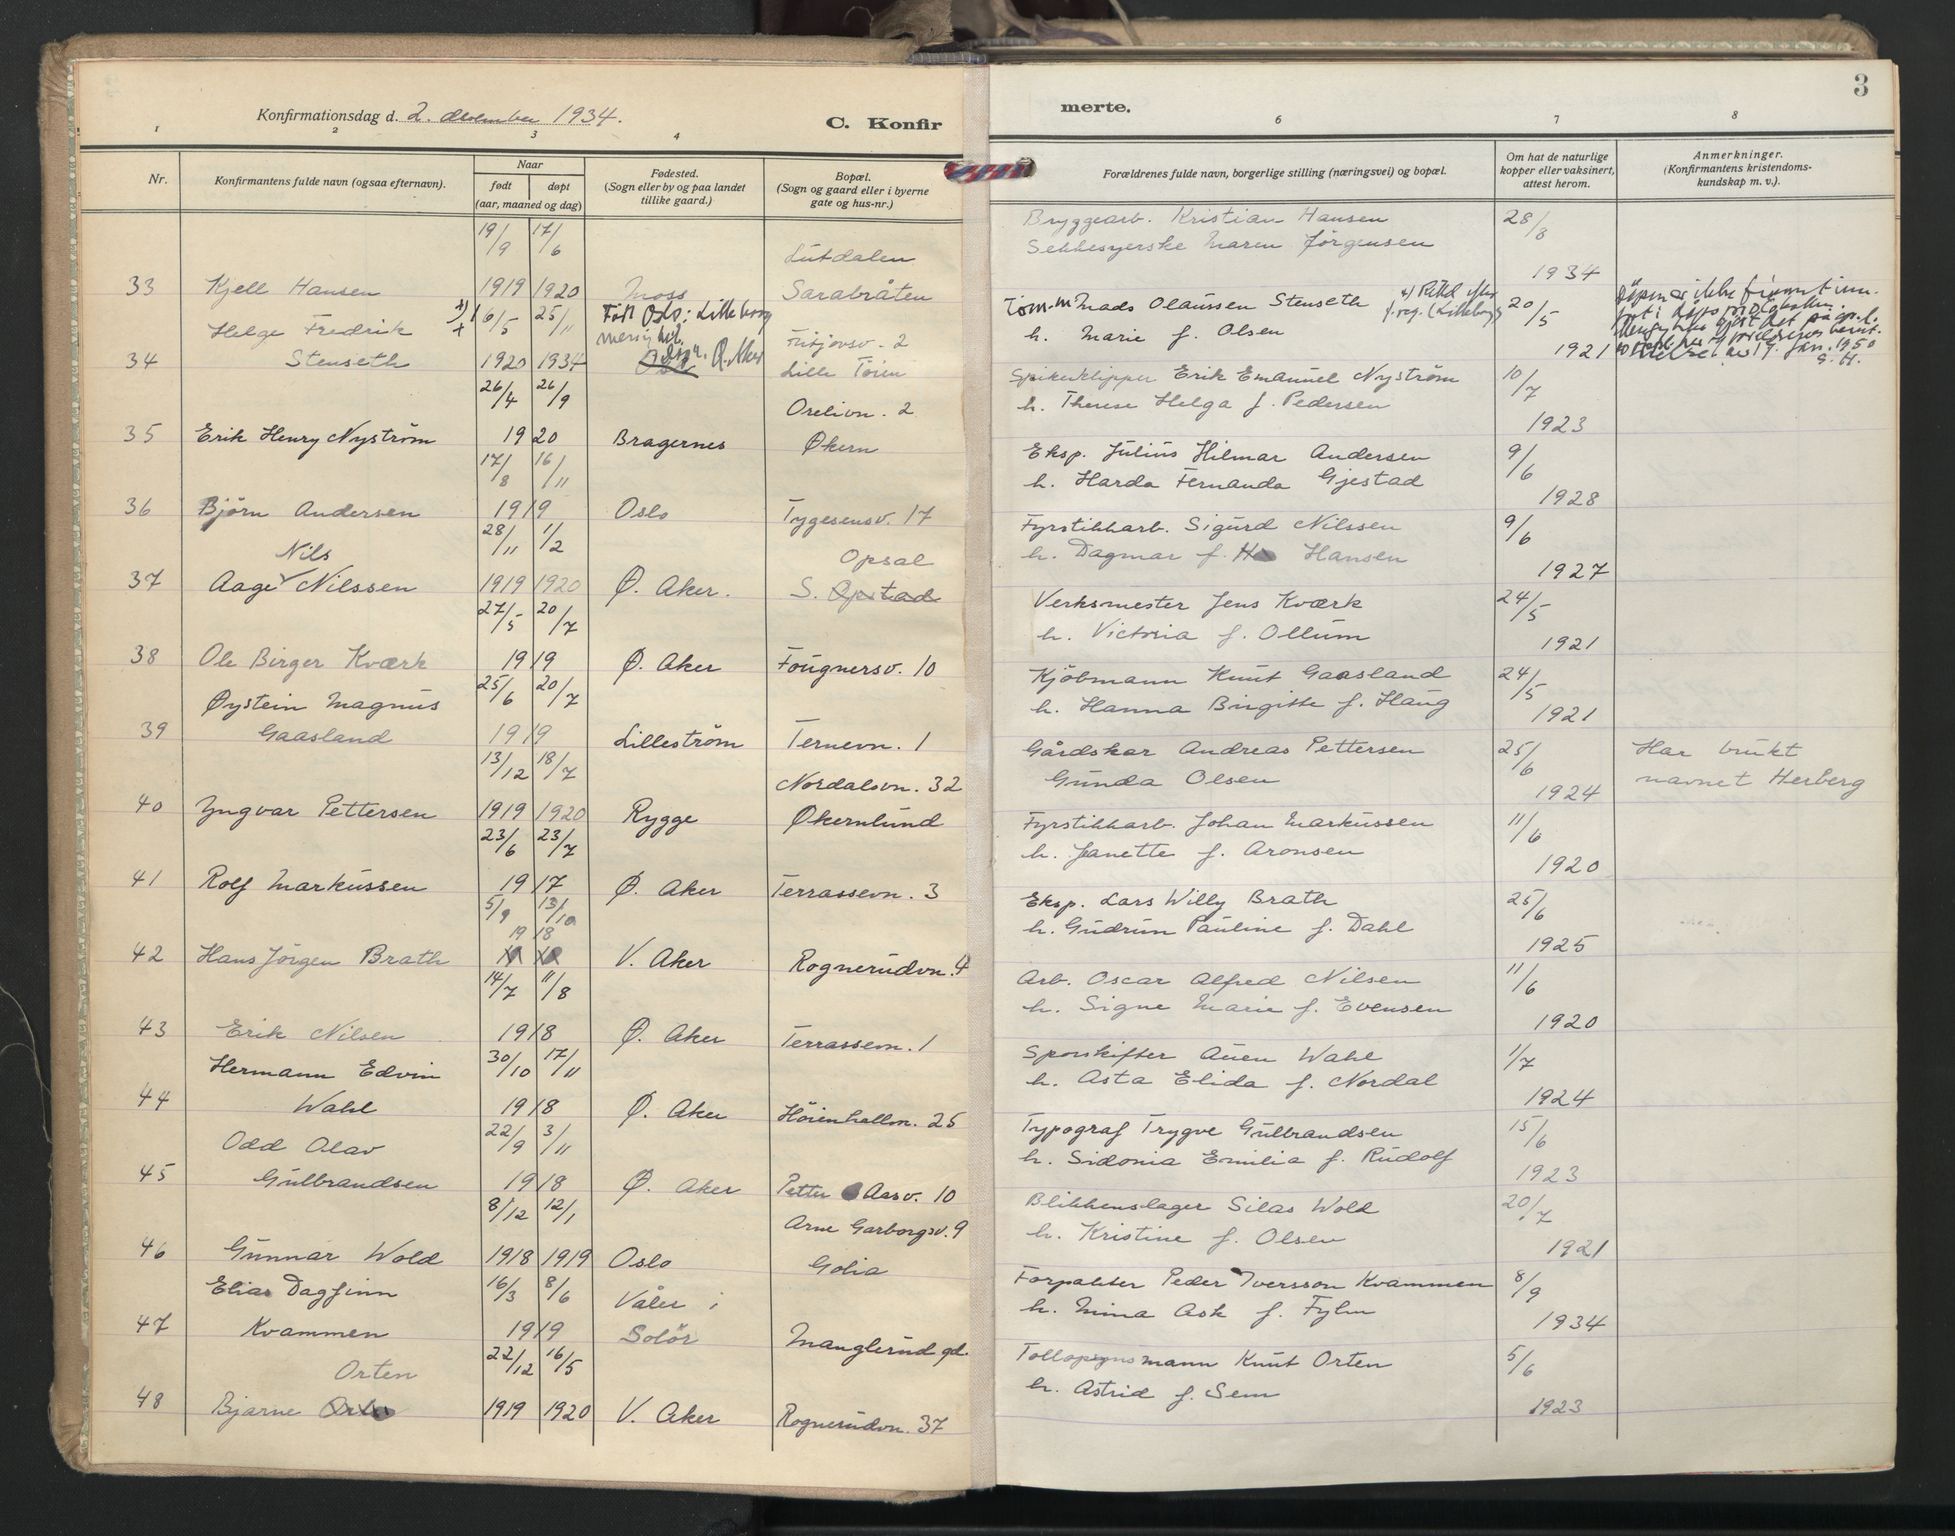 Konfirmationsdag d. 2. desember 1934.
C. Konfir
1 2 3 4
Nr.
Konfirmantens fulde navn (ogsaa efternavn).
Naar
født døpt
(aar, maaned og dag)
Fødested.
(Sogn eller by og paa landet
tillike gaard.)
Bopæl.
(Sogn og gaard eller i byerne
gate og hus-nr.)
19/9 17/6
Lutdalen
33 Kjell Hansen 1919 1920 Moss Sarabråten
Helge Fredrik 16/5 25/11 Født Oslo: Lilleborg
menighet. Fritjovsv. 2
34 Stenseth 1920 1934 Ø. Aker Lille Tøien
26/4 26/9
Orelivn. 2
35 Erik Henry Nyström 1920 Bragernes Økern
17/8 16/11
36 Bjørn Andersen 1919 Oslo Tygesensv. 17
28/11 1/2
Nils Opsal
37 Aage Nilssen 1919 1920 Ø. Aker. S. Opstad
27/5 20/7
38 Ole Birger Kværk 1919 Ø. Aker Fougnersv. 10
25/6 20/7
Øystein Magnus
39 Gaasland 1919 Lilleström Ternevn. 1
13/12 18/7
Nordalsvn. 32
40 Yngvar Pettersen 1919 1920 Rygge Økernlund
23/6 23/7
41 Rolf Markussen 1917 Ø. Aker Terrassevn. 3
5/9 13/10
1918
42 Hans Jörgen Brath V. Aker Rognerudvn. 4
14/7 11/8
43 Erik Nilsen 1918 Ø. Aker Terrassevn. 1
Hermann Edvin 30/10 17/11
44 Wahl 1918 Ø. Aker Höienhallvn. 25
Odd Olav 22/9 3/11
45 Gulbrandsen 1918 Ø. Aker Petter Aasv. 10
8/12 12/1
Arne Garborgsv. 9
46 Gunnar Wold 1918 1919 Oslo Golia
Elias Dagfinn 16/3 8/6 Våler i
47 Kvammen 1919 Solör Manglerud gd.
22/12 16/5
Orten
48 Bjarne 1919 1920 V. Aker Rognerudvn. 37
3
merte.
6 7 8
Forældrenes fulde navn, borgerlige stilling (næringsvei) og bopæl.
Om hat de naturlige
kopper eller vaksinert,
attest herom.
Anmerkninger.
(Konfirmantens kristendoms-
kundskap m. v.).
Bryggearb. Kristian Hansen 28/8
Sekkesyerske Maren Jörgensen
1934
Töm.m Mads Olaussen Stenseth 20/5
h. Marie f. Olsen
1921
Spikerklipper Erik Emanuel Nyström 10/7
h. Therese Helga f. Pedersen
1923
Eksp. Julius Hilmar Andersen 9/6
h. Harda Fernanda Gjestad
1928
Fyrstikkarb. Sigurd Nilssen 9/6
h. Dagmar f. Hansen
1927
Verksmester Jens Kværk 24/5
h. Victoria f. Ollum
1921
Kjöbmann Knut Gaasland 24/5
h. Hanna Birgitte f. Haug
1921
Gårdskar Andreas Pettersen 25/6 Har brukt
Gunda Olsen navnet Herberg
1924
Fyrstikkarb. Johan Markussen 11/6
h. Janette f. Aronsen
1920
Eksp. Lars Willy Brath 25/6
h. Gudrun Pauline f. Dahl
1925
Arb. Oscar Alfred Nilsen 11/6
h. Signe Marie f. Evensen
1920
Sporskifter Auen Wahl 1/7
h. Asta Elida f. Nordal
1924
Typograf Trygve Gulbrandsen 15/6
h. Sidonia Emilia f. Rudolf
1923
Blikkenslager Silas Wold 20/7
h. Kristine f. Olsen
1921
Forpakter Peder Iversson Kvammen 8/9
h. Mina Ask f. Fylm
1934
Tollopsynsmann Knut Orten 5/6
h. Astrid f. Sem
1923